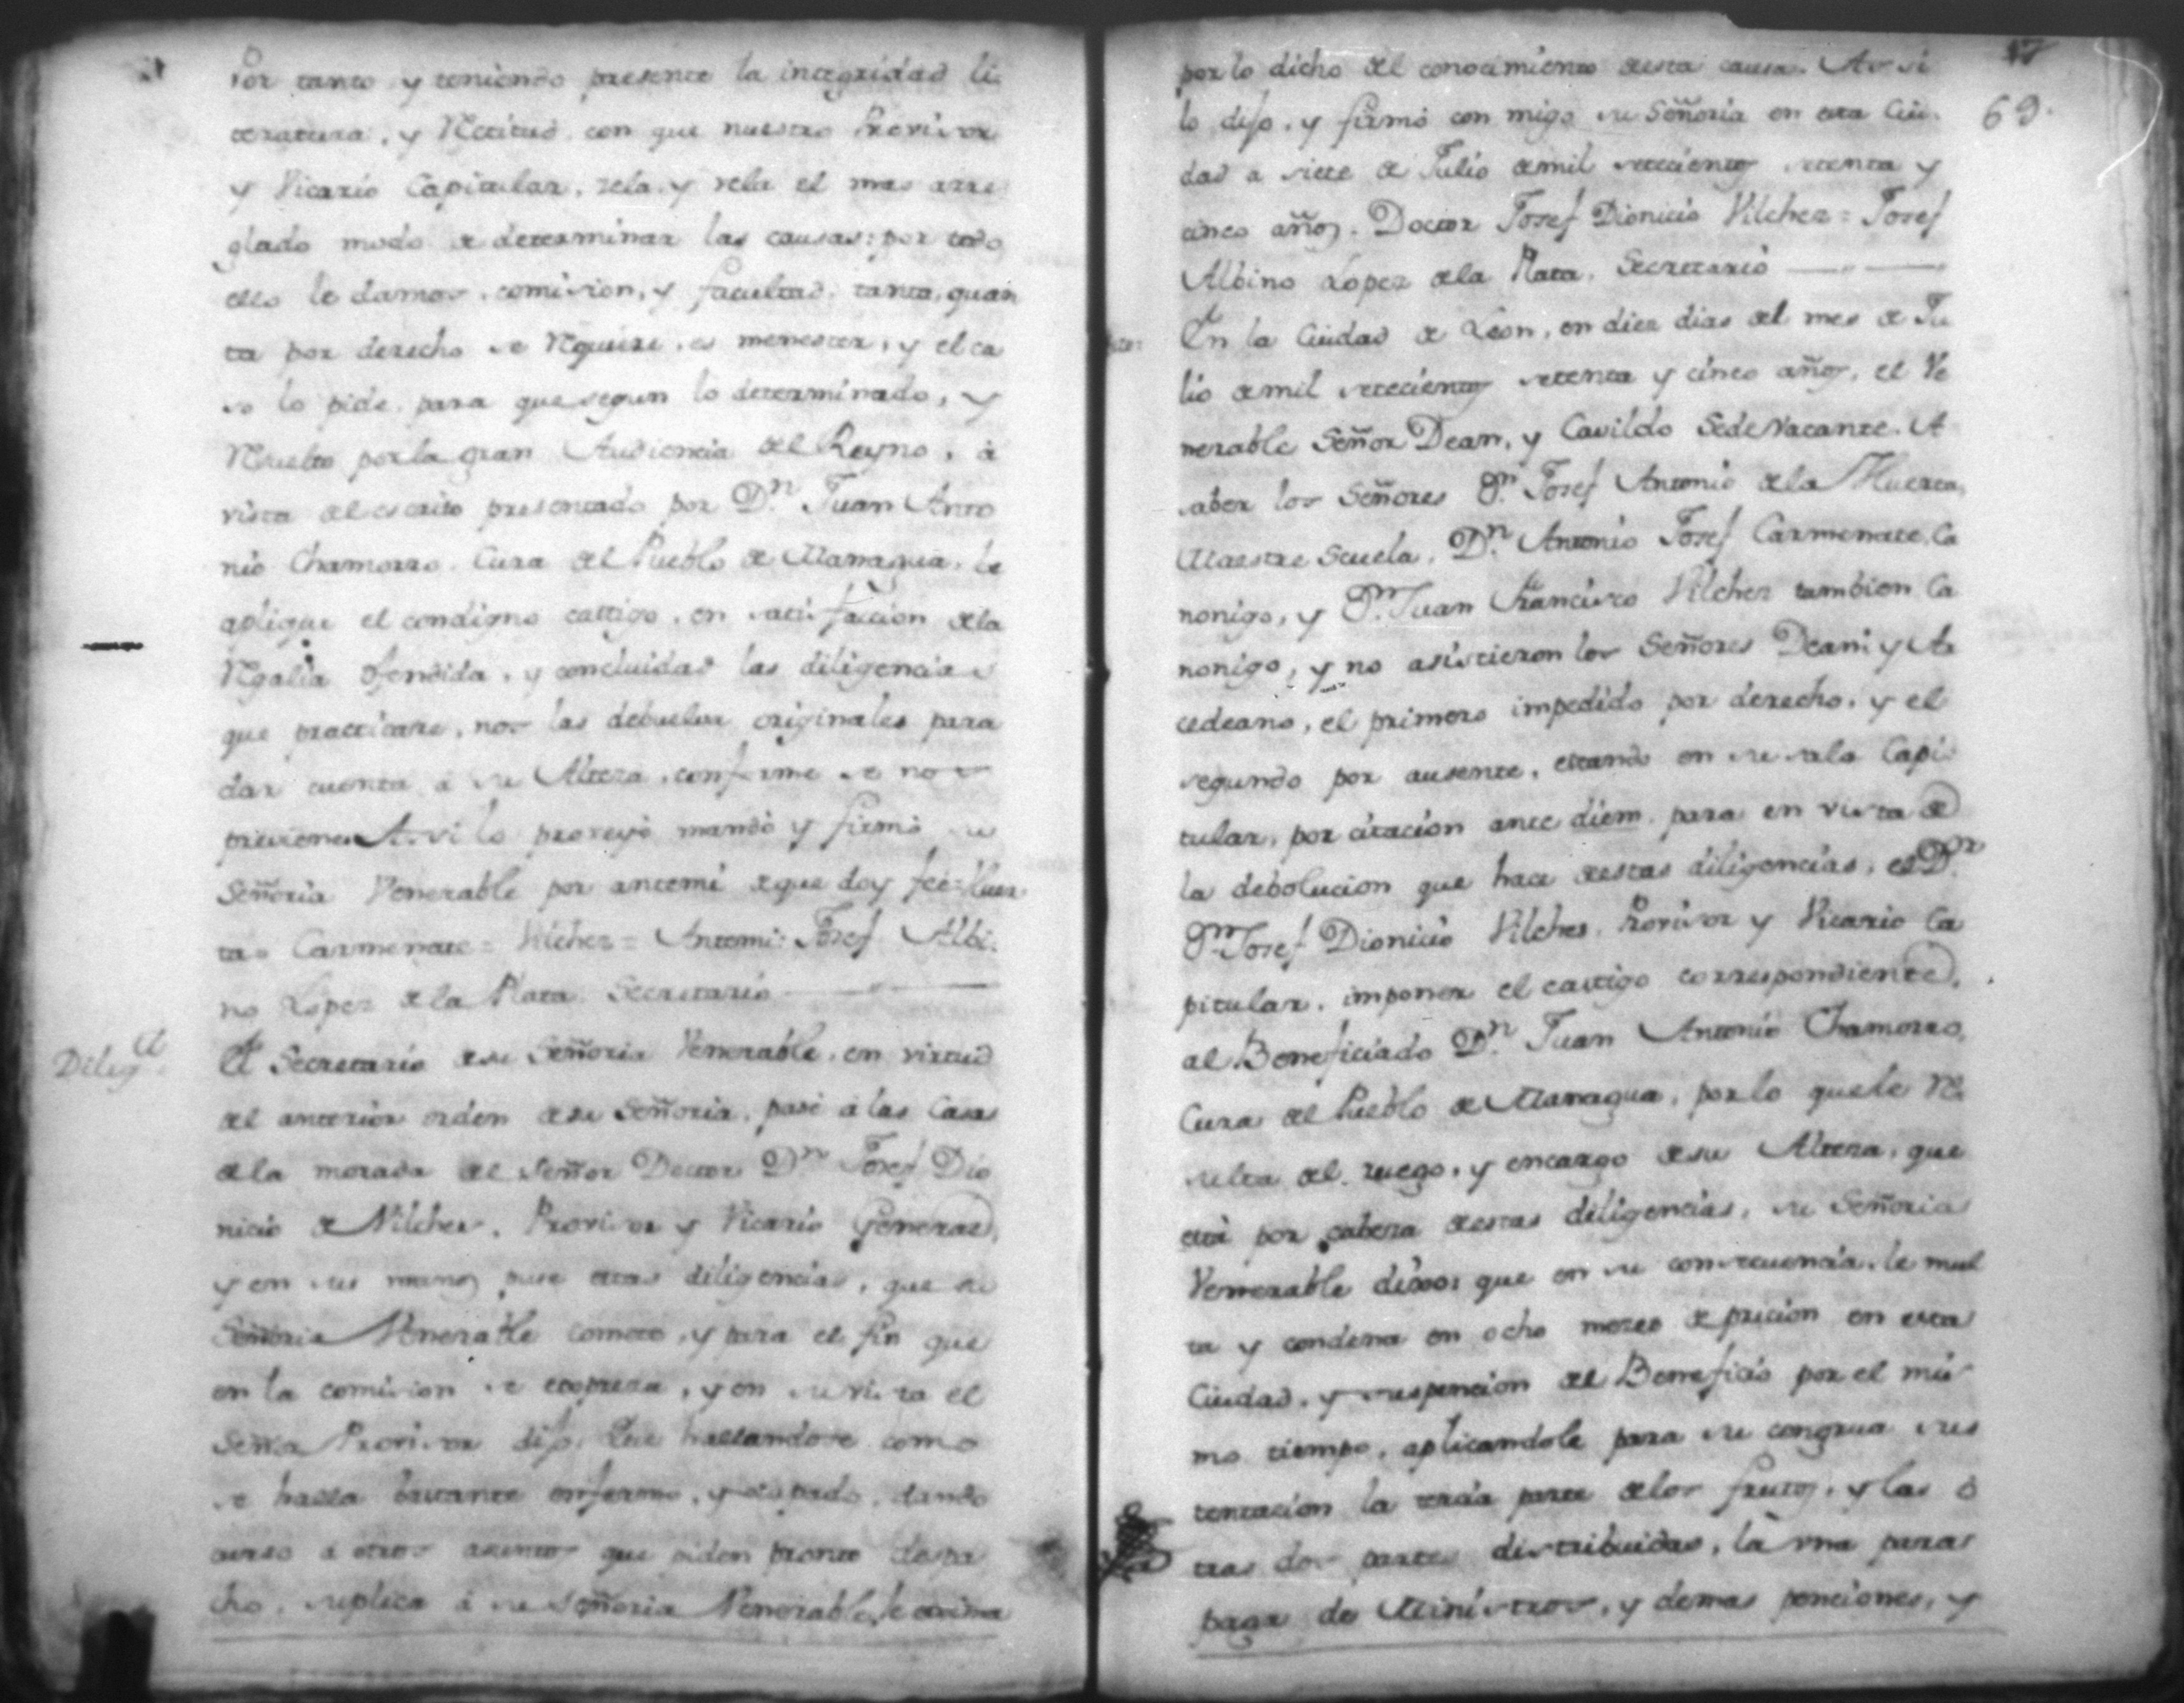 Por tanto y teniendo presente la integridad li
teratura, y Rectitud con que nuestro Provisor
y Vicario Capitular, zela y vela el mas arre
glado modo de determinar las causas; por todo
ello le damos comision, y facultad, tanta, quan
ta por derecho se Requiere, es menester, y el ca
so lo pide, para que segun lo determinado, y
Resuelto por la gran Audiencia del Reyno, à
vista del escrito presentado por Dn. Juan Anto
nio Chamorro. Cura del Pueblo de Managua, le
aplique el condigno castigo, en satisfaccion dela
Regalia Ofendida, y concluidas las diligencias
que practicare, nos las debuelva originales para
dar cuenta à su Alteza, conforme se nos
previene. Assi lo proveyò mandò y firmò su
Señoria Venerable por antemi de que doy feè = Huer
ta = Carmenate = Vilches = Antemi: Josef Albi
no Lopez de la Plata Secretario
Diliga.
El Secretario de su Señoria Venerable, en virtud
del anterior orden de su Señoria, pasè à las Casas
dela morada del Señor Doctor Dn Josef Dio
nicio de Vilches, Provisor y Vicario General,
y en sus manos puse estas diligencias, que su
Señoria Venerable comete, y para el fin que
en la comision se expresa, y en su vista el
Señor Provisor dijo: Que hallandose como
se halla bastante enfermo, y ocupado, dando
curso à otros asuntos que piden pronto despa
cho, suplica à su Señoria Venerable, le exima
17
69.
por lo dicho del conocimiento desta causa. Assi
lo dijo, y firmò con migo su Señoria en esta Ciu
dad a siete de Julio demil setecientos setenta y
cinco años. Doctor Josef Dionicio Vilches = Josef
Albino Lopez dela Plata. Secretario
En la Ciudad de Leon, en diez dias del mes de Ju
lio demil setecientos setenta y cinco años, el Ve
nerable Señor Dean, y Cavildo Sede Vacante. A
saber los Señores Dn. Josef Antonio dela Huerta,
Maestre Scuela, Dn. Antonio Josef Carmenate, Ca
nonigo, y Dn. Juan Francisco Vilches tambien Ca
nonigo, y no asistieron los Señores Dean y Ar
cedeano, el primero impedido por derecho, y el
segundo por ausente, estando en su sala Capi
tular, por citacion ante diem, para en vista de
la debolucion que hace destas diligencias, el Dr.
Dn. Josef Dionicio Vilches, Provisor y Vicario Ca
pitular, imponer el castigo correspondiente,
al Beneficiado Dn. Juan Antonio Chamorro,
Cura del Pueblo de Managua, por lo que le Re
sulta del ruego, y encargo de su Alteza, que
està por cabeza destas diligencias, su Señoria
Venerable dixo: que en su consecuencia, le mul
ta y condena en ocho meses de pricion en esta
Ciudad, y suspencion del Beneficio por el mis
mo tiempo, aplicandole para su congrua sus
tentacion la tercia parte delos frutos, y las ò
tras dos partes distribuidas, la vna para
pagar de Ministros, y demas penciones, y